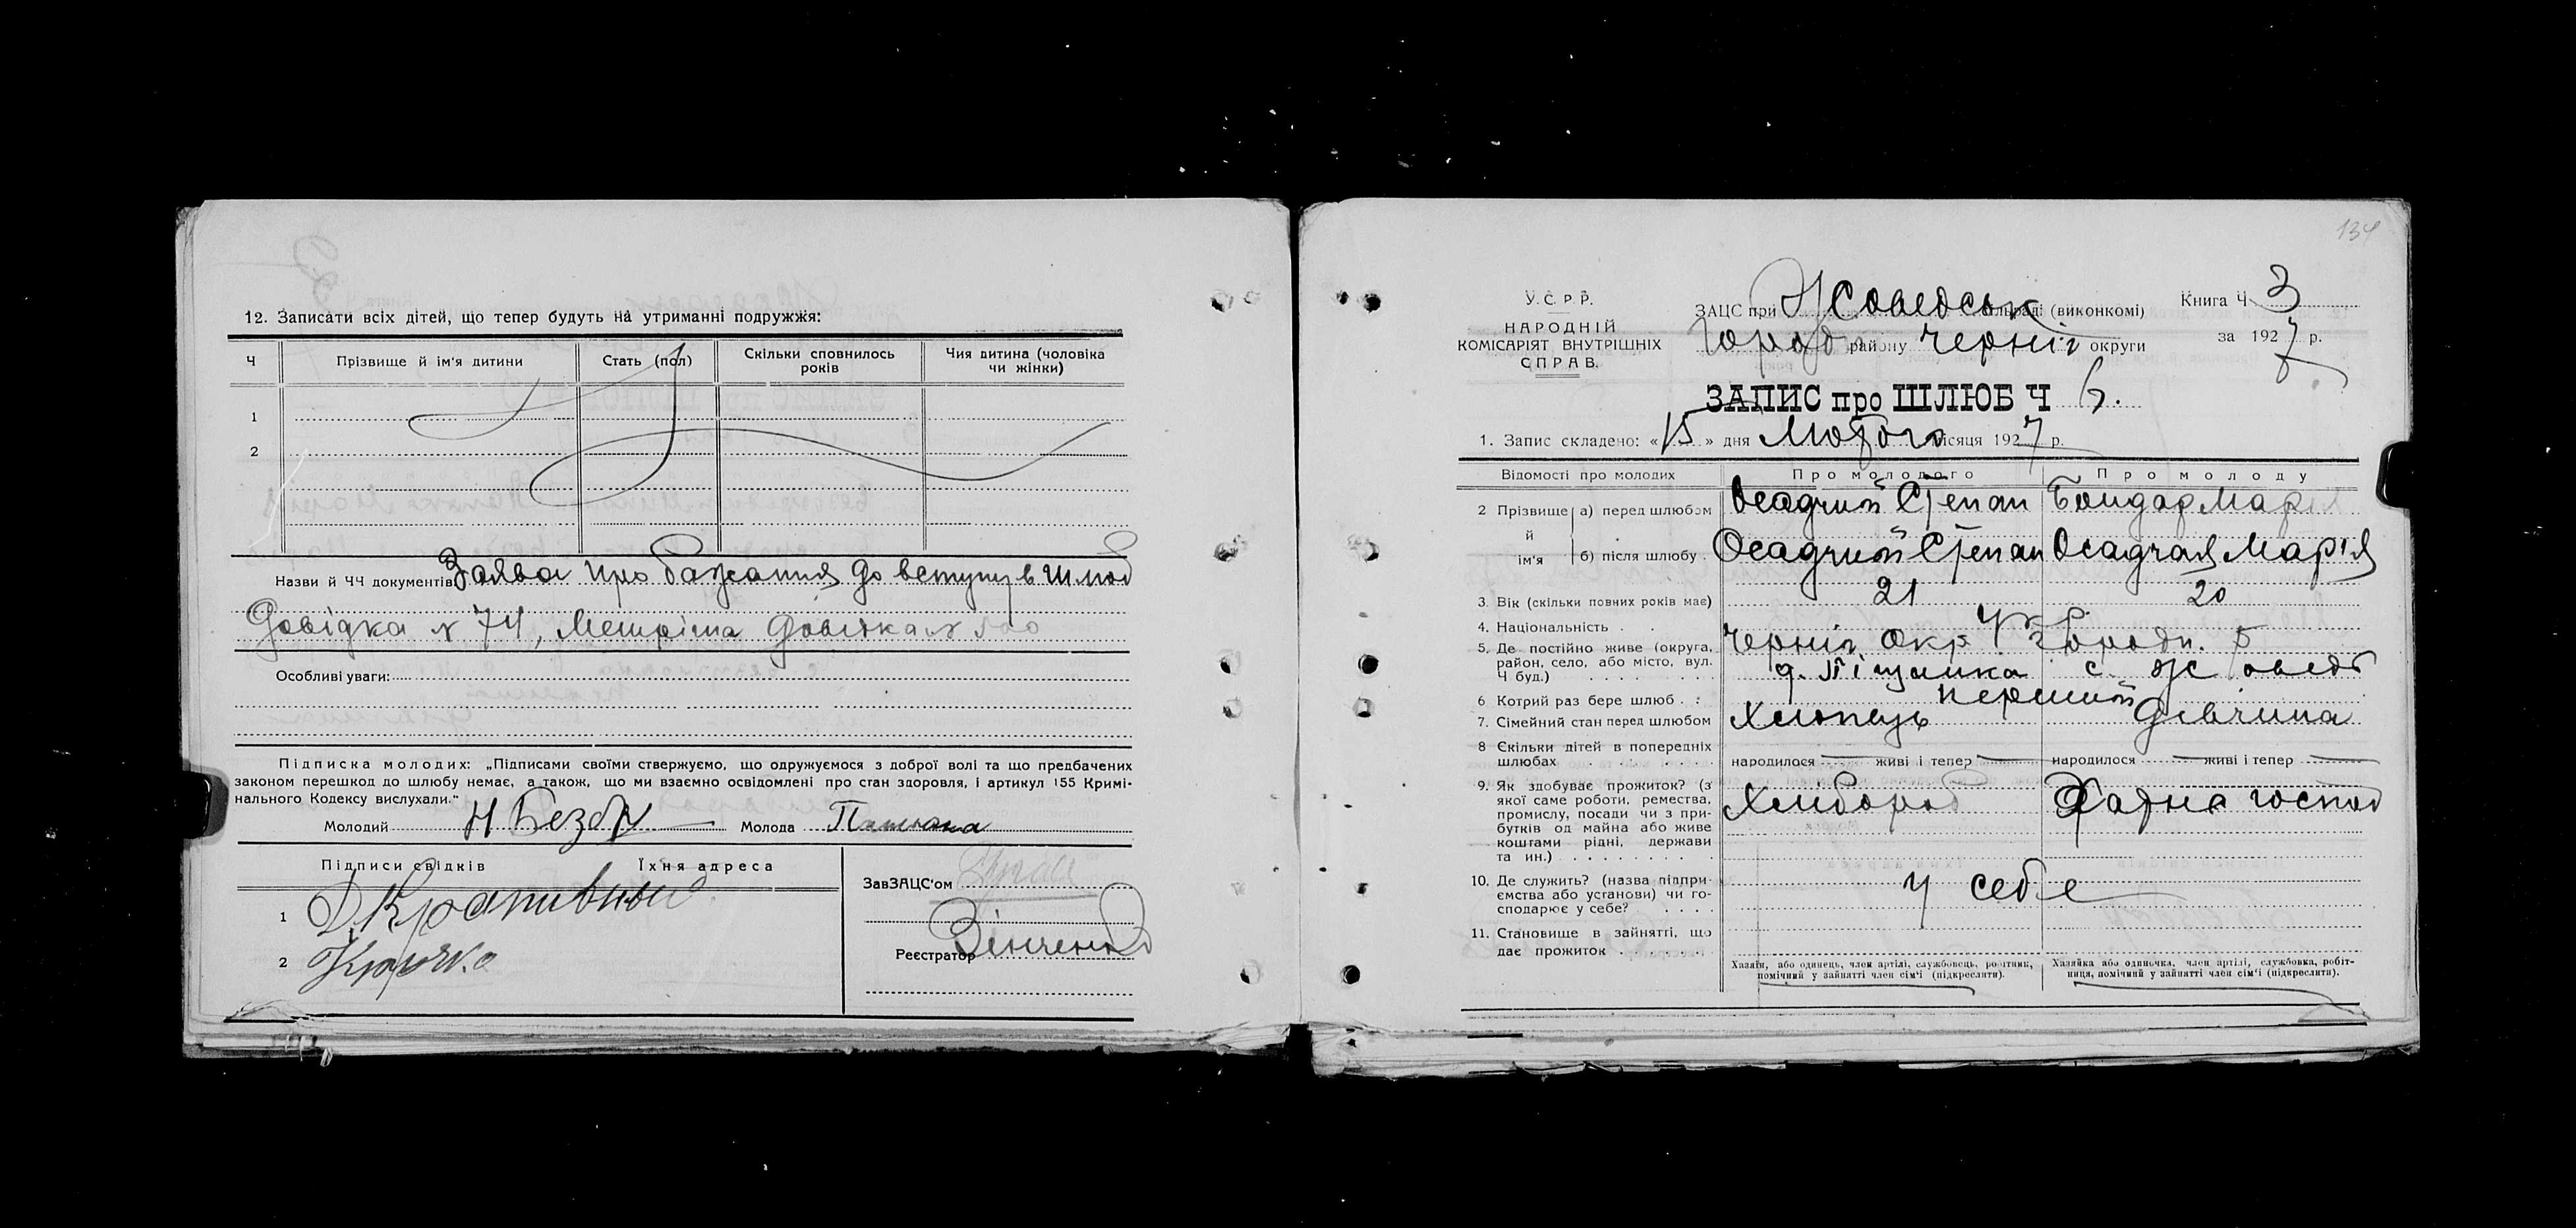 12. Записати всіх дітей, що тепер будуть на утриманні подружжя:
Ч
Прізвище й ім'я дитини
Стать (пол)
Скільки сповнилось років
Чия дитина (чоловіка чи жінки)
1
2
Назви й ЧЧ документів Заява про бажання до вступу в шлюб
Довідка № 74, Метрічна довідка №
Особливі уваги:
Підписка молодих: „Підписами своїми стверджуємо, що одружуємося з доброї волі та що предбачених
законом перешкод до шлюбу немає, а також, що ми взаємно освідомлені про стан здоровля, і артикул 155 Кримі-
нального Кодексу вислухали."
Молодий Н Безбр Молода
Підписи свідків Їхня адреса
ЗавЗАЦС'ом
1 Д Крапивный
Реєстратор Зінченко
2 Крючко
134
У. С. Р. Р.
НАРОДНІЙ
КОМІСАРІЯТ ВНУТРІШНІХ
СПРАВ.
ЗАЦС при Жоведськ сільраді (виконкомі)
Город району Черніг округи
Книга Ч 3
за 1927 р.
ЗАПИС про ШЛЮБ Ч 6.
1. Запис складено: « 15 » дня Лютого місяця 1927 р.
Відомості про молодих
Про молодого
Про молоду
2 Прізвище й ім'я
а) перед шлюбом Осадчий Степан Бондар Марія
б) після шлюбу Осадчий Степан Осадчая Марія
3. Вік (скільки повних років має) 21 20
4. Національність Укр
5. Де постійно живе (округа, район, село, або місто, вул. Ч буд.) Черніг. Окр Городн. Р
с. Жоведь
6 Котрий раз бере шлюб перший
7. Сімейний стан перед шлюбом Хлопець Дівчина
8 Скільки дітей в попередніх шлюбах народилося — живі і тепер — народилося — живі і тепер —
9. Як здобуває прожиток? (з якої саме роботи, ремества, промислу, посади чи з прибутків од майна або живе коштами рідні, держави та ин.) Хлібороб Хатнє господ
10. Де служить? (назва підприємства або установи) чи господарює у себе? У себе
11. Становище в зайнятті, що дає прожиток
Хазяїн, або одинець, член артілі, службовець, робітник, помічний у зайнятті член сім'ї (підкреслити).
Хазяйка або одиночка, член артілі, службовка, робітниця, помічний у зайнятті член сім'ї (підкреслити).